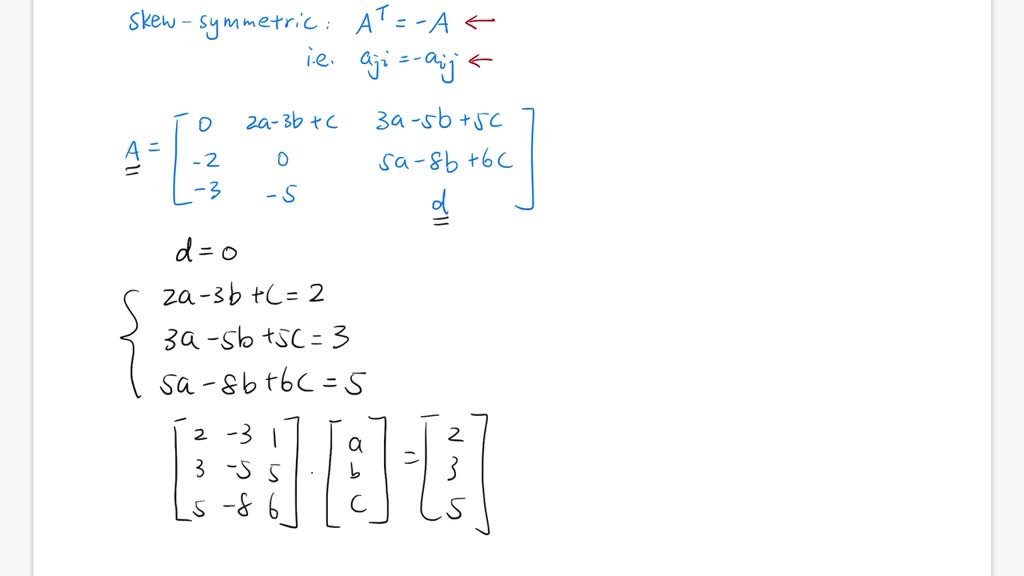 skew-symmetric: Aᵀ = -A ←
i.e. aji = -aij ←
A = [ 0 2a-3b+c 3a-5b+5c
-2 0 5a-8b+6c
-3 -5 d ]
d = 0
{ 2a-3b+c = 2
3a-5b+5c = 3
5a-8b+6c = 5
[ 2 -3 1 ] · [ a ] = [ 2 ]
3 -5 5 b 3
5 -8 6 c 5